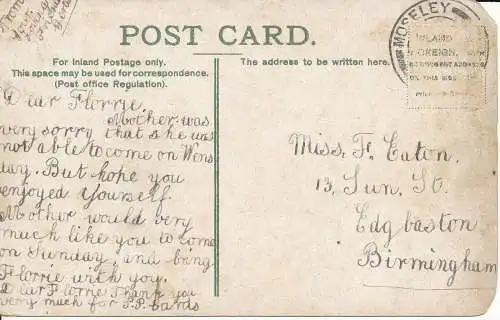 From
your
POST CARD.
For Inland Postage only.
This space may be used for correspondence.
(Post office Regulation).
The address to be written here.
MOSELEY
INLAND
FOREIGN
ON THIS SIDE
Dear Florrie.
Mother was
very sorry that she was
not able to come on Wens
day. But hope you
enjoyed yourself.
Mother would very
much like you to come
on Sunday. and bring
Florrie with you.
Dear Florrie Thank you
very much for P.P. Cards
Miss. F. Eaton.
13, Sun. St.
Edgbaston
Birmingham